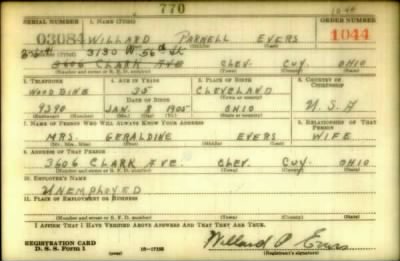 770
SERIAL NUMBER 1. NAME (PRINT) ORDER NUMBER
03084 WILLARD PARNELL EVERS 1044
2. ADDRESS (PRINT) 3130 W. 56th St.
3606 CLARK AVE CLEV. CUY. OHIO
(Number and street or R. F. D. number) (Town) (County) (State)
3. TELEPHONE 4. AGE IN YEARS 5. PLACE OF BIRTH 6. COUNTRY OF CITIZENSHIP
WOODBINE 35 CLEVELAND
DATE OF BIRTH (Town or county)
9390 JAN. 8 1905 OHIO U.S.A
(Mo.) (Day) (Yr.) (State or country)
7. NAME OF PERSON WHO WILL ALWAYS KNOW YOUR ADDRESS 8. RELATIONSHIP OF THAT PERSON
MRS. GERALDINE EVERS WIFE
(Mr., Mrs., Miss) (First) (Middle) (Last)
9. ADDRESS OF THAT PERSON
3606 CLARK AVE. CLEV. CUY. OHIO
(Number and street or R. F. D. number) (Town) (County) (State)
10. EMPLOYER'S NAME
UNEMPLOYED
11. PLACE OF EMPLOYMENT OR BUSINESS
(Number and street or R. F. D. number) (Town) (County) (State)
I AFFIRM THAT I HAVE VERIFIED ABOVE ANSWERS AND THAT THEY ARE TRUE.
REGISTRATION CARD
D. S. S. Form 1 (over) 16-17105 Willard P Evers
(Registrant's signature)